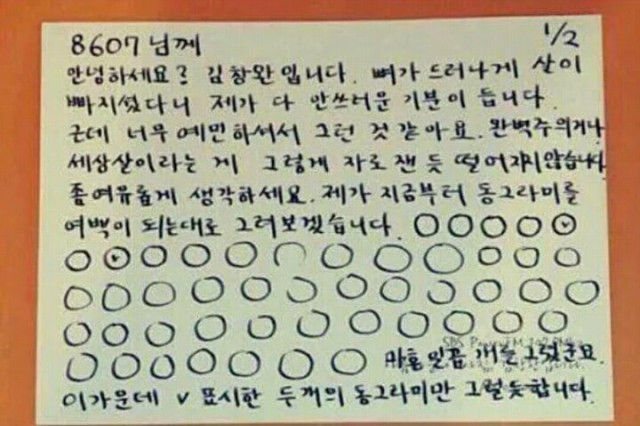 8607님께
1/2
안녕하세요? 김창완입니다. 뼈가 드러나게 살이
빠지셨다니 제가 다 안쓰러운 기분이 듭니다.
근데 너무 예민하셔서 그런 것 같아요. 완벽주의거나
세상살이라는 게 그렇게 자로 잰 듯 떨어지지않습니다
좀여유롭게 생각하세요. 제가 지금부터 동그라미를
여백이 되는대로 그려보겠습니다.
마흔일곱 개를 그렸군요.
이가운데 v 표시한 두개의 동그라미만 그럴듯합니다.